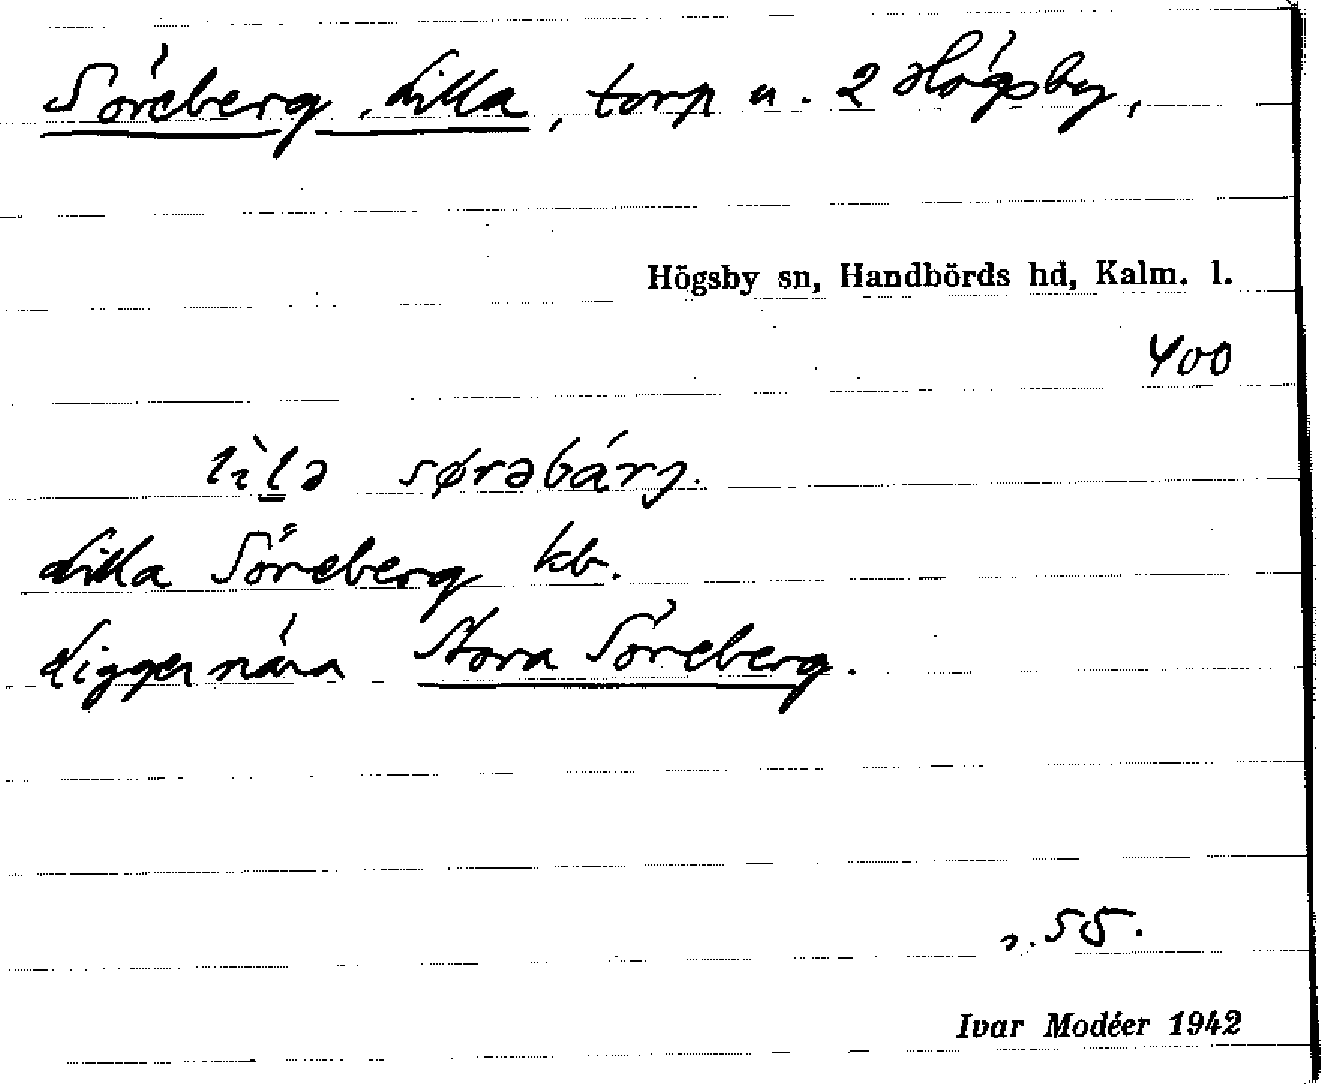 Söreberg, Lilla, torp u. 2 Högsby,
Högsby sn, Handbörds hd, Kalm. l.
400
lìlə sørəbárj.
Lilla Söreberg kb.
Ligger nära Stora Söreberg.
s. 55.
Ivar Modéer 1942